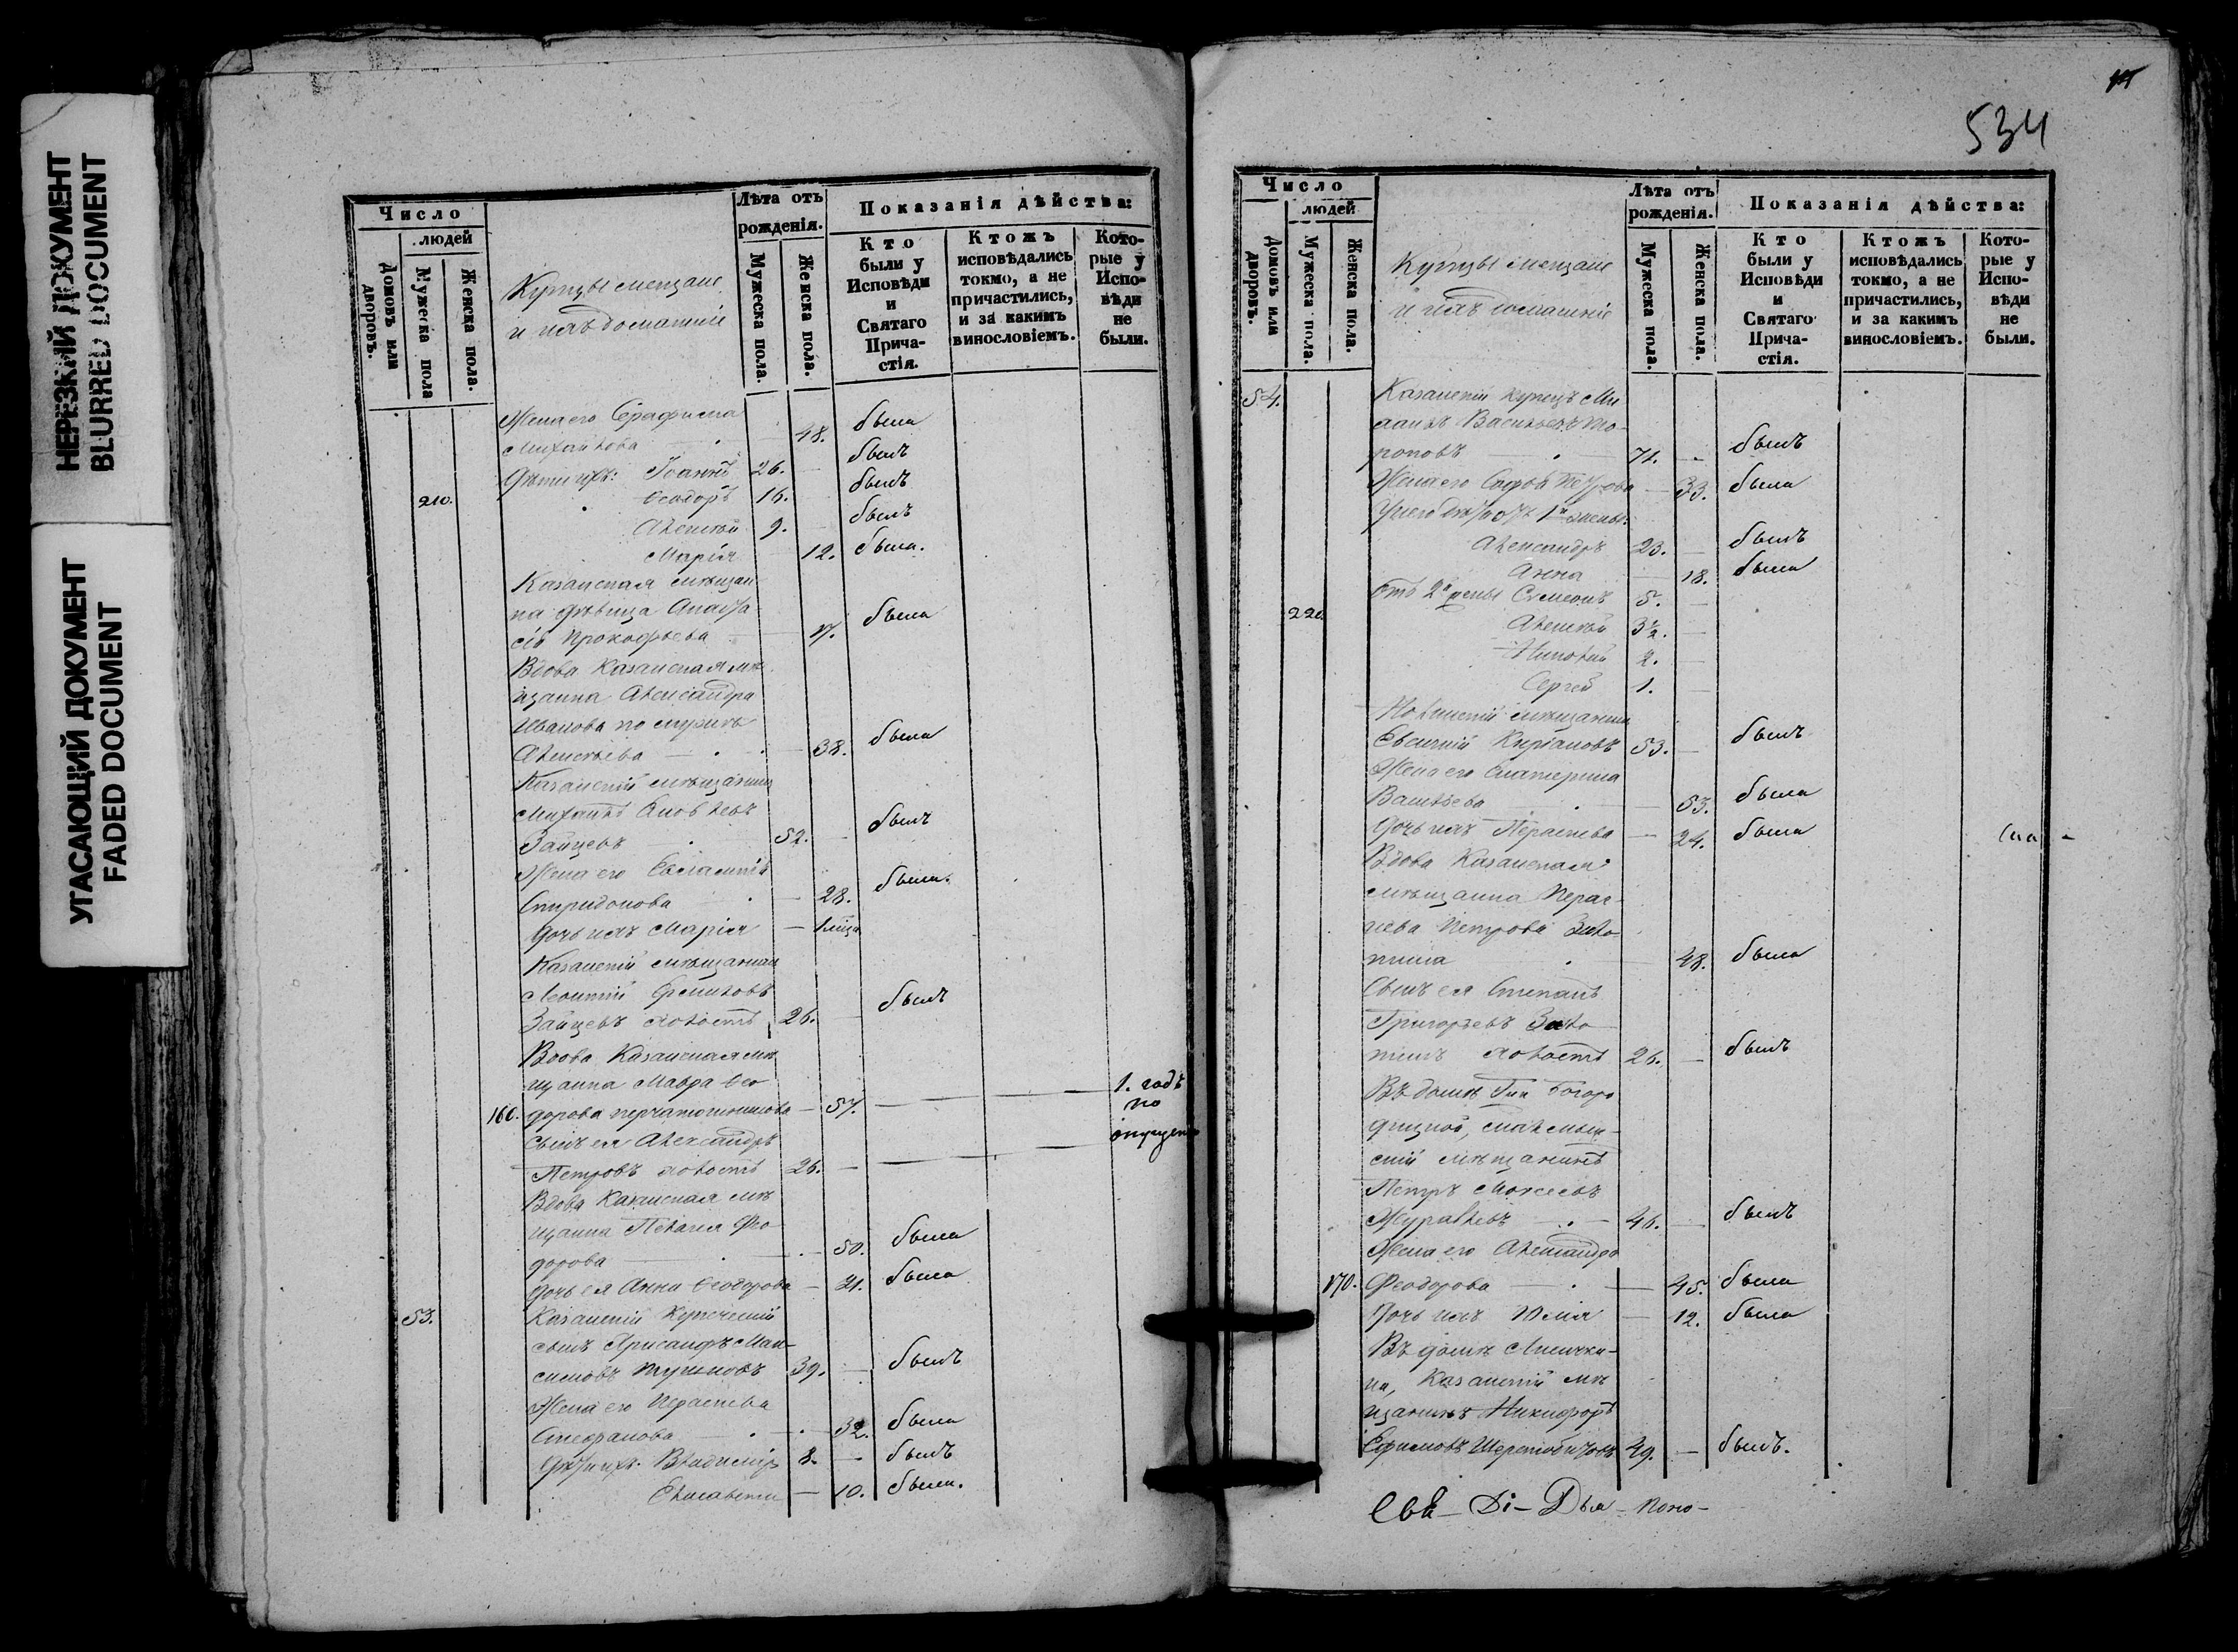 НЕРЕЗКИЙ ДОКУМЕНТ
BLURRED DOCUMENT
УГАСАЮЩИЙ ДОКУМЕНТ
FADED DOCUMENT
Число
людей
Домовъ или дворовъ.
Мужеска пола
Женска пола.
Купцы мещане
и ихъ домашніе
Лѣта отъ рожденія.
Мужеска пола.
Женска пола.
Показанія дѣйства:
Кто были у Исповѣди и Святаго Прича-стія.
Ктожъ исповѣдались токмо, а не причастились, и за какимъ винословіемъ.
Кото-рые у Испо-вѣди не были.
Жена его Серафима
Михайлова 48. была
Дѣти ихъ: Іоаннъ 26. былъ
210. Ѳеодоръ 16. былъ
Алексѣй 9. былъ
Марія 12. была.
Казанская мѣщан
ка дѣвица Анаста
сія Прокофьева 17. была
Вдова Казанская мѣ
щанка Александра
Иванова по мужѣ
Алексѣева 38. была
Казанскій мѣщанинъ
Михаилъ Яковлевъ
Зайцевъ 52. былъ
Жена его Евлампія
Спиридонова 28. была.
Дочь ихъ Марія
Казанскій мѣщанин
Леонтій
Зайцевъ холостъ 26. былъ
Вдова Казанская мѣ
щанка Мавра Ѳео
160. дорова 57. 1. годъ
по
опущен
Сынъ ея Александръ
Петровъ холостъ 26.
Вдова Казанская мѣ
щанка Пелагея Фео
дорова 50. была
Дочь ея Анна Ѳеодорова 21. была
53. Казанскій Купеческій
сынъ Хрисанфъ Мак
симовъ 39. былъ
Жена его Параскева
Стефанова 32. была
Дѣти ихъ: Владиміръ 8. былъ
Елисавета 10. была.
534
Число
людей
Домовъ или дворовъ.
Мужеска пола.
Женска пола.
Купцы мещане
и ихъ домашніе
Лѣта отъ рожденія.
Мужеска пола.
Женска пола.
Показанія дѣйства:
Кто были у Исповѣди и Святаго Прича-стія.
Ктожъ исповѣдались токмо, а не причастились, и за какимъ винословіемъ.
Кото-рые у Испо-вѣди не были.
54. Казанскій Купецъ Ми
хаилъ Васильевъ То
роповъ 71. былъ
Жена его Софья Петрова 33. была
У него дѣти отъ 1й жены:
Александръ 23. былъ
Анна 18. была
Отъ 2й жены Семеонъ 5.
220. Алексѣй 3½.
Николай 2.
Сергей 1.
мѣщанинъ
Евсигній 53. былъ
Жена его Екатерина
Васильева 53. была
Дочь ихъ Параскева 24. была
Вдова Казанская
мѣщанка Парас
кева Петрова
48. была
Сынъ ея Степанъ
Григорьевъ
холостъ 26. былъ
Въ домѣ Гжи Бого
ро
мѣщанинъ
Петръ Моисеевъ
Журавлевъ 46. былъ
Жена его Александра
170. Феодорова 45. была
Дочь ихъ Юлія 12. была
Въ домѣ
на, Казанскій мѣ
щанинъ Никифоръ
Ефимовъ 49. былъ.
Свя- Ді- Дья- Поно-